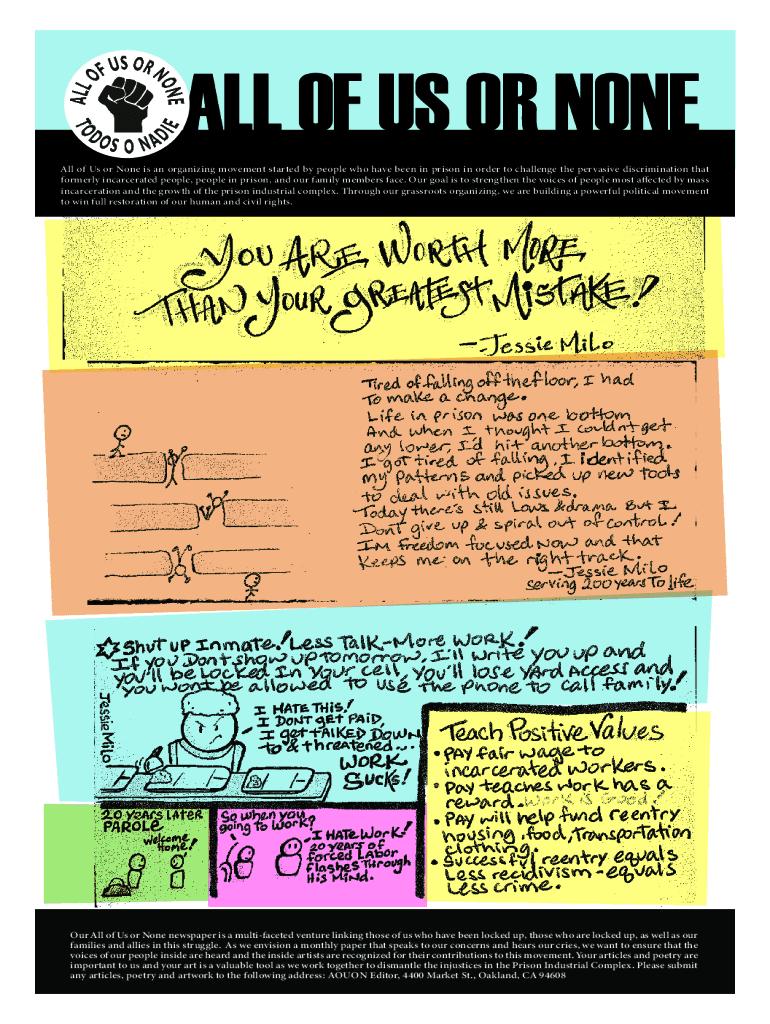 ALL OF US OR NONE
TODOS O NADIE
ALL OF US OR NONE
All of Us or None is an organizing movement started by people who have been in prison in order to challenge the pervasive discrimination that
formerly incarcerated people, people in prison, and our family members face. Our goal is to strengthen the voices of people most affected by mass
incarceration and the growth of the prison industrial complex. Through our grassroots organizing, we are building a powerful political movement
to win full restoration of our human and civil rights.
You ARE WORTH MORE
THAN YOUR GREATEST MISTAKE!
—Jessie Milo
Tired of falling off the floor, I had
To make a change.
Life in prison was one bottom
And when I thought I couldn't get
any lower, I'd hit another bottom.
I got tired of falling, I identified
my patterns and picked up new tools
to deal with old issues.
Today there's still Lows & drama But I
Dont give up & spiral out of control!
I'm freedom focused Now and that
Keeps me on the right track.
—Jessie Milo
serving 200 years To life
Shut up Inmate! Less Talk-More WORK!
If you Dont show up tomorrow, I'll write you up and
you'll be locked In your cell, you'll lose yard Access and,
you wont be allowed to use the phone to call family!
Jessie Milo
I HATE THIS!
I DONT get PAID,
I get TALKED DOWN
to & threatened...
WORK
SUCKS!
20 years LATER
PAROLE
Welcome
home!
So when you
going to Work?
I HATE Work!
20 years of
forced Labor
flashes Through
His Mind.
Teach Positive Values
• PAY fair wage to
incarcerated workers.
• Pay teaches work has a
reward. Work is Good!
• Pay will help fund reentry
housing, food, Transportation
clothing.
• Successful reentry equals
Less recidivism - equals
Less crime.
Our All of Us or None newspaper is a multi-faceted venture linking those of us who have been locked up, those who are locked up, as well as our
families and allies in this struggle. As we envision a monthly paper that speaks to our concerns and hears our cries, we want to ensure that the
voices of our people inside are heard and the inside artists are recognized for their contributions to this movement. Your articles and poetry are
important to us and your art is a valuable tool as we work together to dismantle the injustices in the Prison Industrial Complex. Please submit
any articles, poetry and artwork to the following address: AOUON Editor, 4400 Market St., Oakland, CA 94608